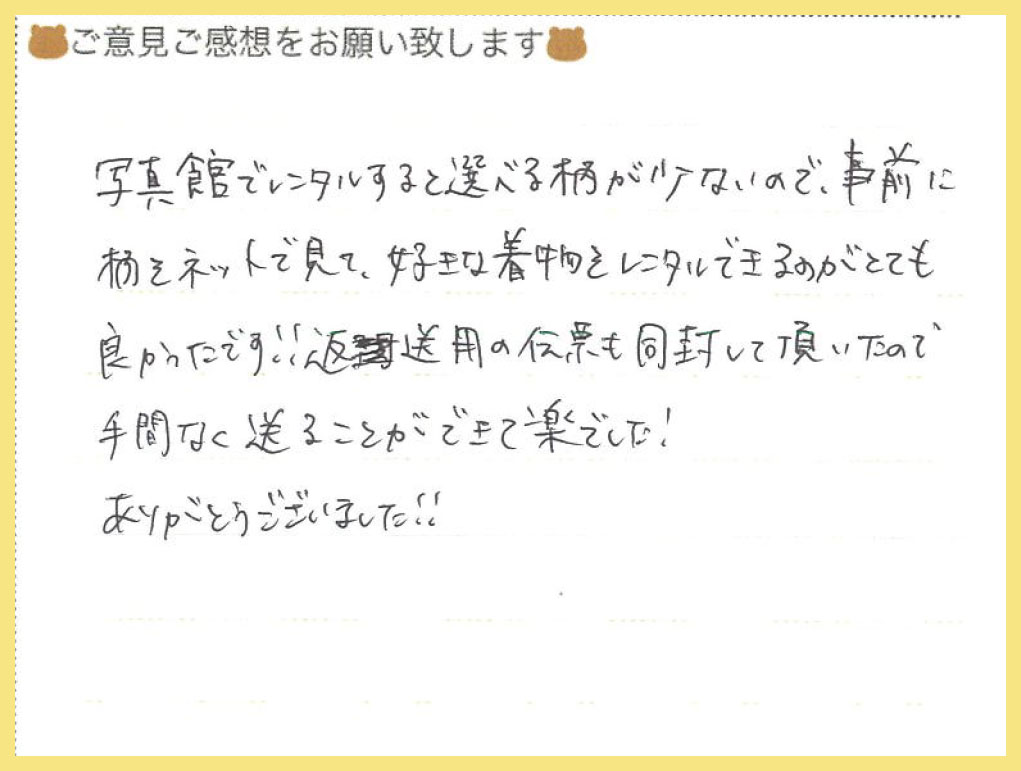 ご意見ご感想をお願い致します
写真館でレンタルすると選べる柄が少ないので、事前に
柄をネットで見て、好きな着物をレンタルできるのがとても
良かったです!!返送用の伝票も同封して頂いたので
手間なく送ることができて楽でした!
ありがとうございました!!